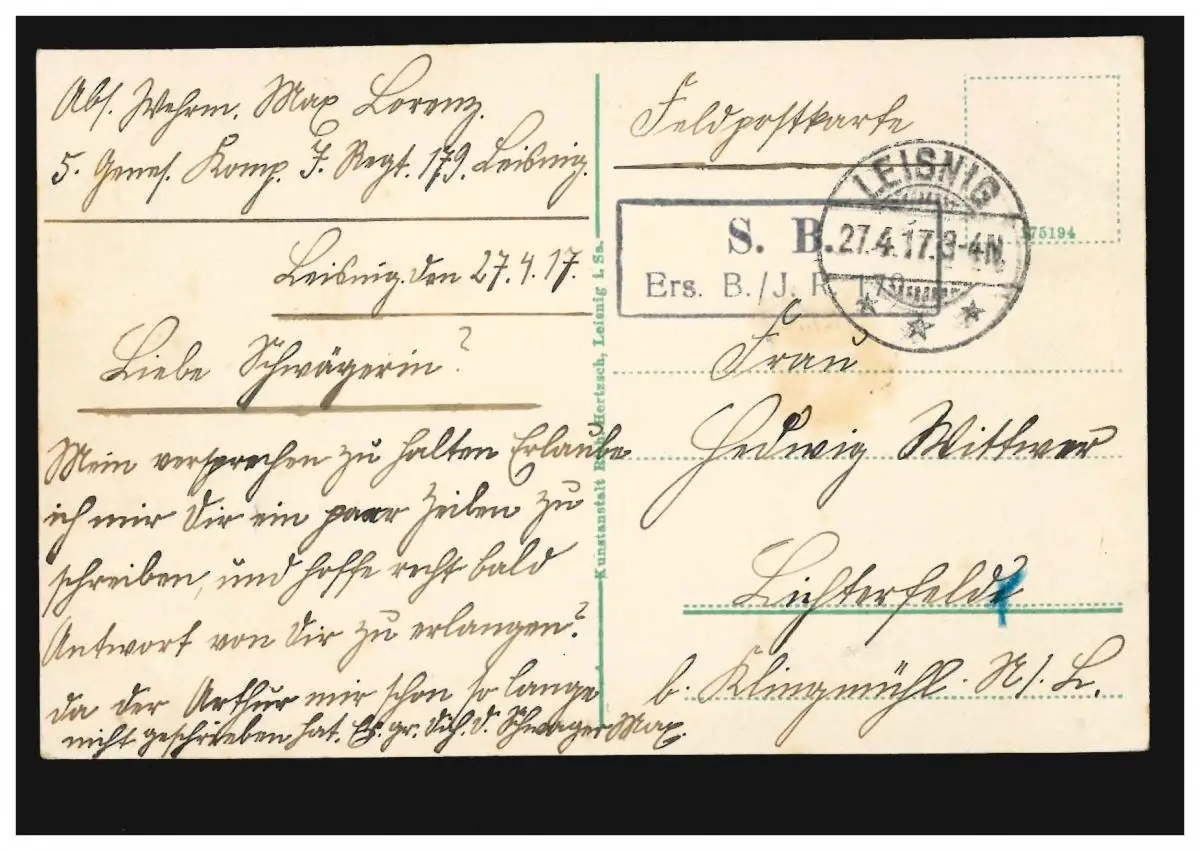 Abs. Wehrm. Max Lorenz.
5. Genes. Komp. J. Regt. 179. Leisnig.
Leisnig. den 27.4.17.
Liebe Schwägerin?
Mein versprechen zu halten Erlaube
ich mir dir ein paar Zeilen zu
schreiben, und hoffe recht bald
Antwort von dir zu erlangen?
da der Arthur mir schon so lange
nicht geschrieben hat. Es. gr. dich. d. Schwager Max.
Kunstanstalt Hertzsch, Leisnig i. Sa.
Feldpostkarte
LEISNIG
27.4.17.3-4N.
75194
S. B.
Ers. B./J. R. 179
Frau
Hedwig Wittwer
Lichterfelde
b. Klingmühl. N/L.